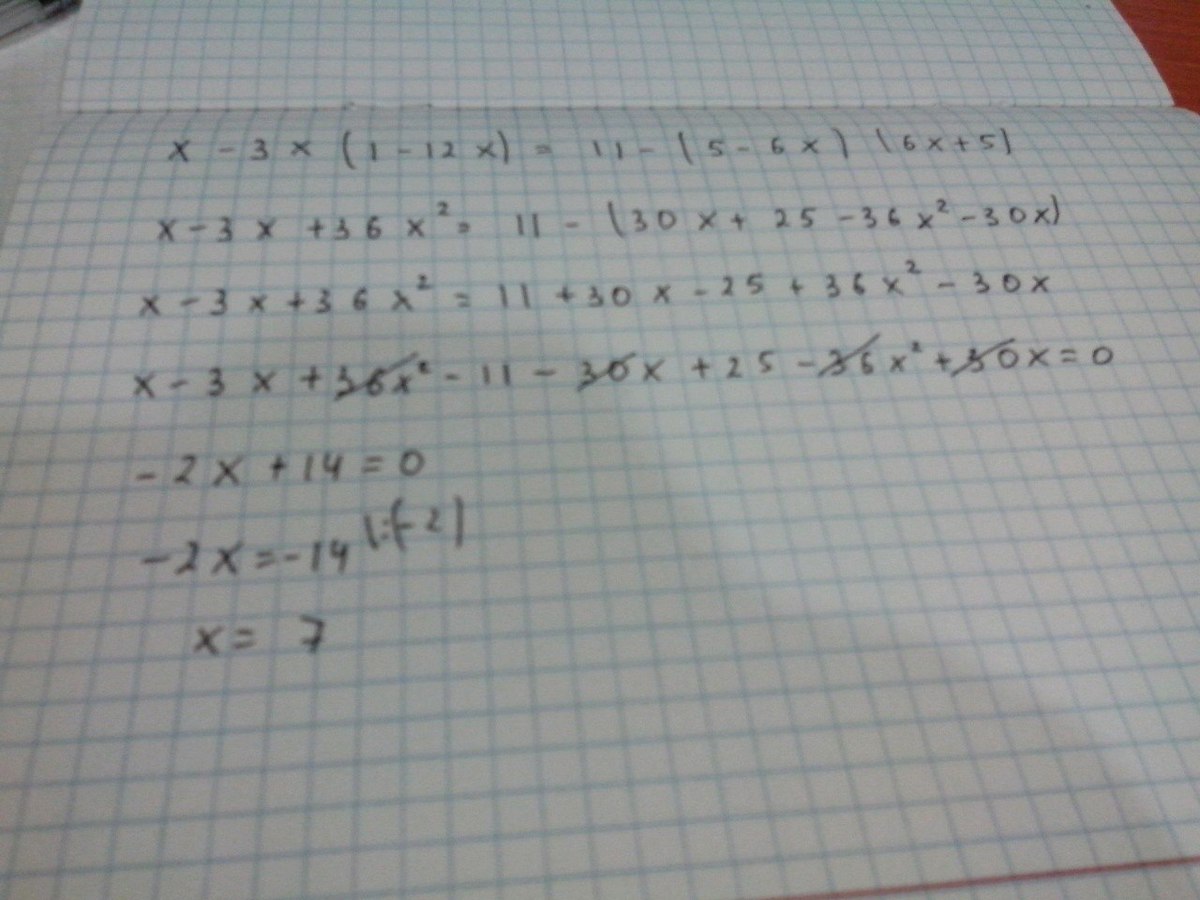 x - 3x (1 - 12x) = 11 - (5 - 6x) (6x + 5)
x - 3x + 36x² = 11 - (30x + 25 - 36x² - 30x)
x - 3x + 36x² = 11 + 30x - 25 + 36x² - 30x
x - 3x + 36x² - 11 - 30x + 25 - 36x² + 30x = 0
-2x + 14 = 0
-2x = -14 |:(-2)
x = 7